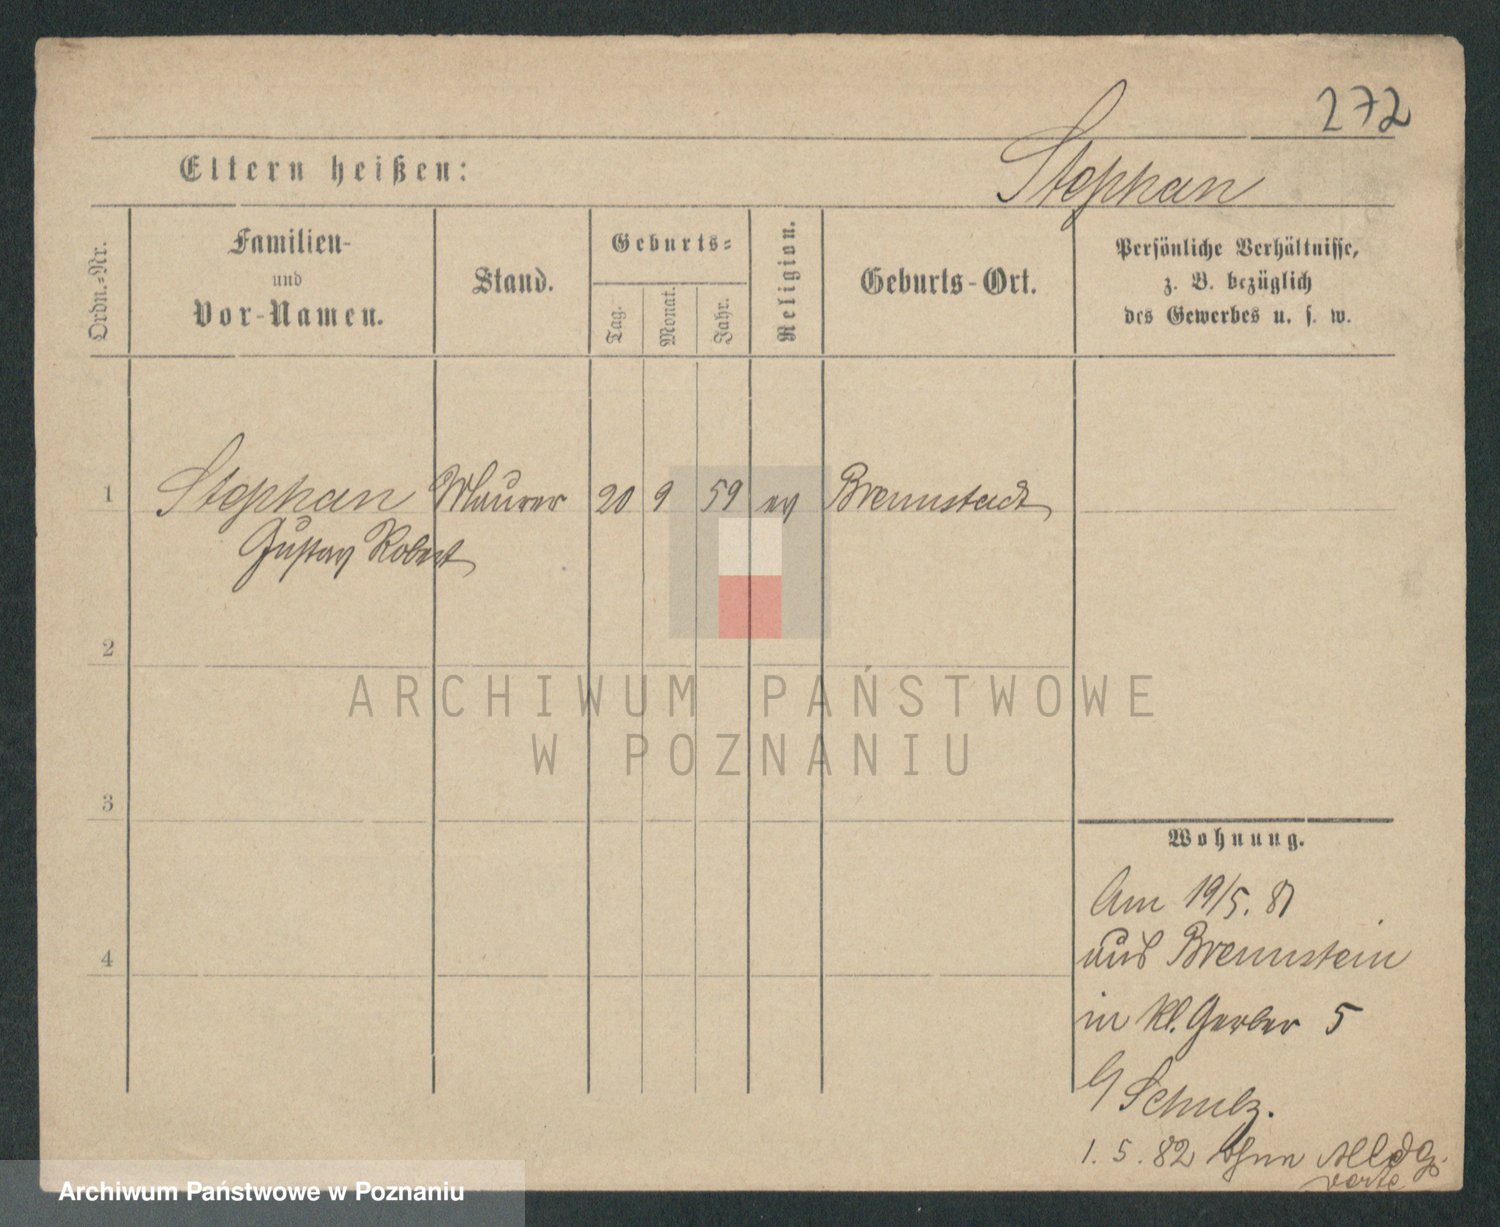 272
Stephan
Eltern heißen:
Ordn.-Nr.
Familien-
und
Vor-Namen.
Stand.
Geburts-
Tag.
Monat.
Jahr.
Religion.
Geburts-Ort.
Persönliche Verhältnisse,
z. B. bezüglich
des Gewerbes u. s. w.
1 Stephan Maurer 20 9 59 ev Brennstadt
Gustav Robert
2
3
4
Wohnung.
Am 19/5. 81
aus Brennstein
in Kl. Gerber 5
b/ Schulz.
1. 5. 82 ohne Meldg.
ARCHIWUM PAŃSTWOWE
W POZNANIU
Archiwum Państwowe w Poznaniu